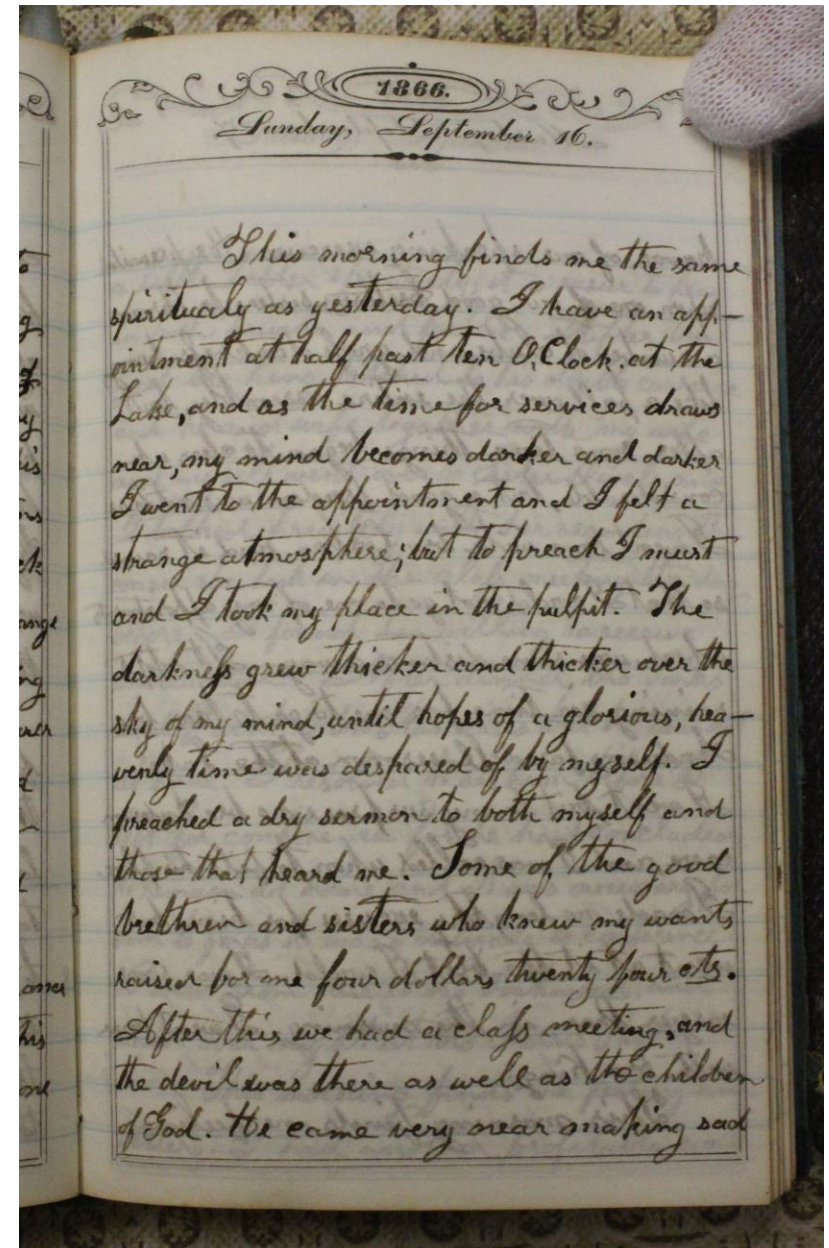 1866.
Sunday, September 16.
This morning finds me the same
spiritualy as yesterday. I have an app-
ointment at half past ten O,Clock. at the
Lake, and as the time for services draws
near, my mind becomes darker and darker
I went to the appointment and I felt a
strange atmosphere; but to preach I must
and I took my place in the pulpit. The
darkneſs grew thicker and thicker over the
sky of my mind, until hopes of a glorious, hea-
venly time was despared of by myself. I
preached a dry sermon to both myself and
those that heard me. Some of the good
brethren and sisters who knew my wants
raised for me four dollars twenty four cts.
After this we had a claſs meeting, and
the devil was there as well as the children
of God. He came very near making sad